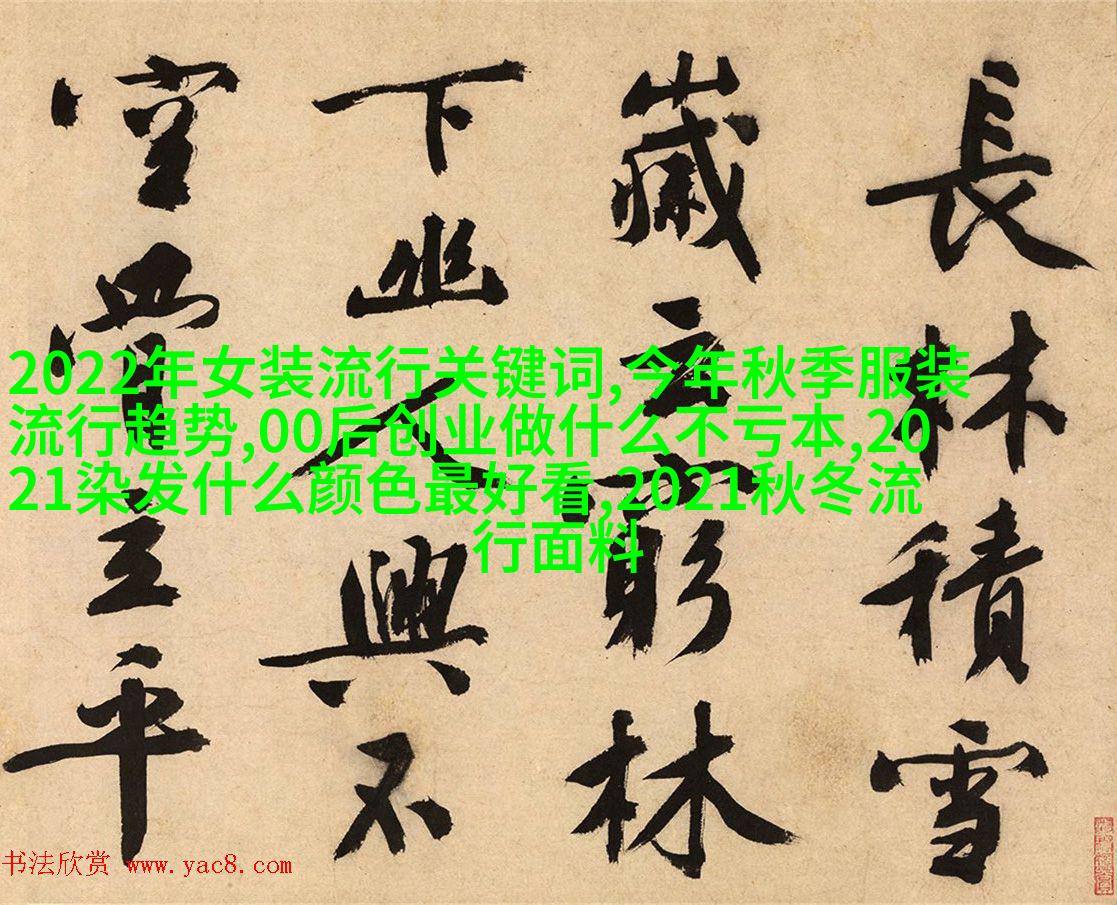 長林積雪
歲窮林
下幽人興不
空平
2022年女装流行关键词,今年秋季服装
流行趋势,00后创业做什么不亏本,20
21染发什么颜色最好看,2021秋冬流
行面料
书法欣赏 www.yac8.com